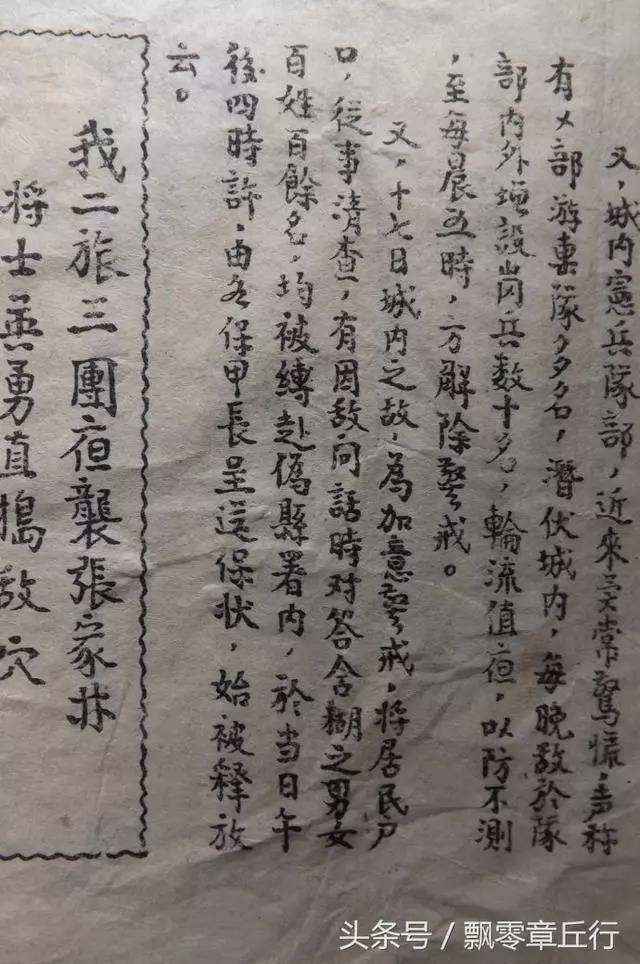 又，城内憲兵隊部，近來異常驚慌，声称
有乂部游击隊多名，潛伏城内，每晚敵於隊
部内外增設崗兵数十名，輪流值夜，以防不測
，至每晨五時，方解除警戒。
又，十七日城内之敌，為加意警戒，将居民户
口，從事清查，有因敌问話時对答含糊之男女
百姓百餘名，均被縛赴偽縣署内，於当日午
後四時許，由各保甲長呈遞保状，始被释放
云。
我二旅三團夜襲張家林
将士英勇直搗敌穴
头条号 / 飘零章丘行